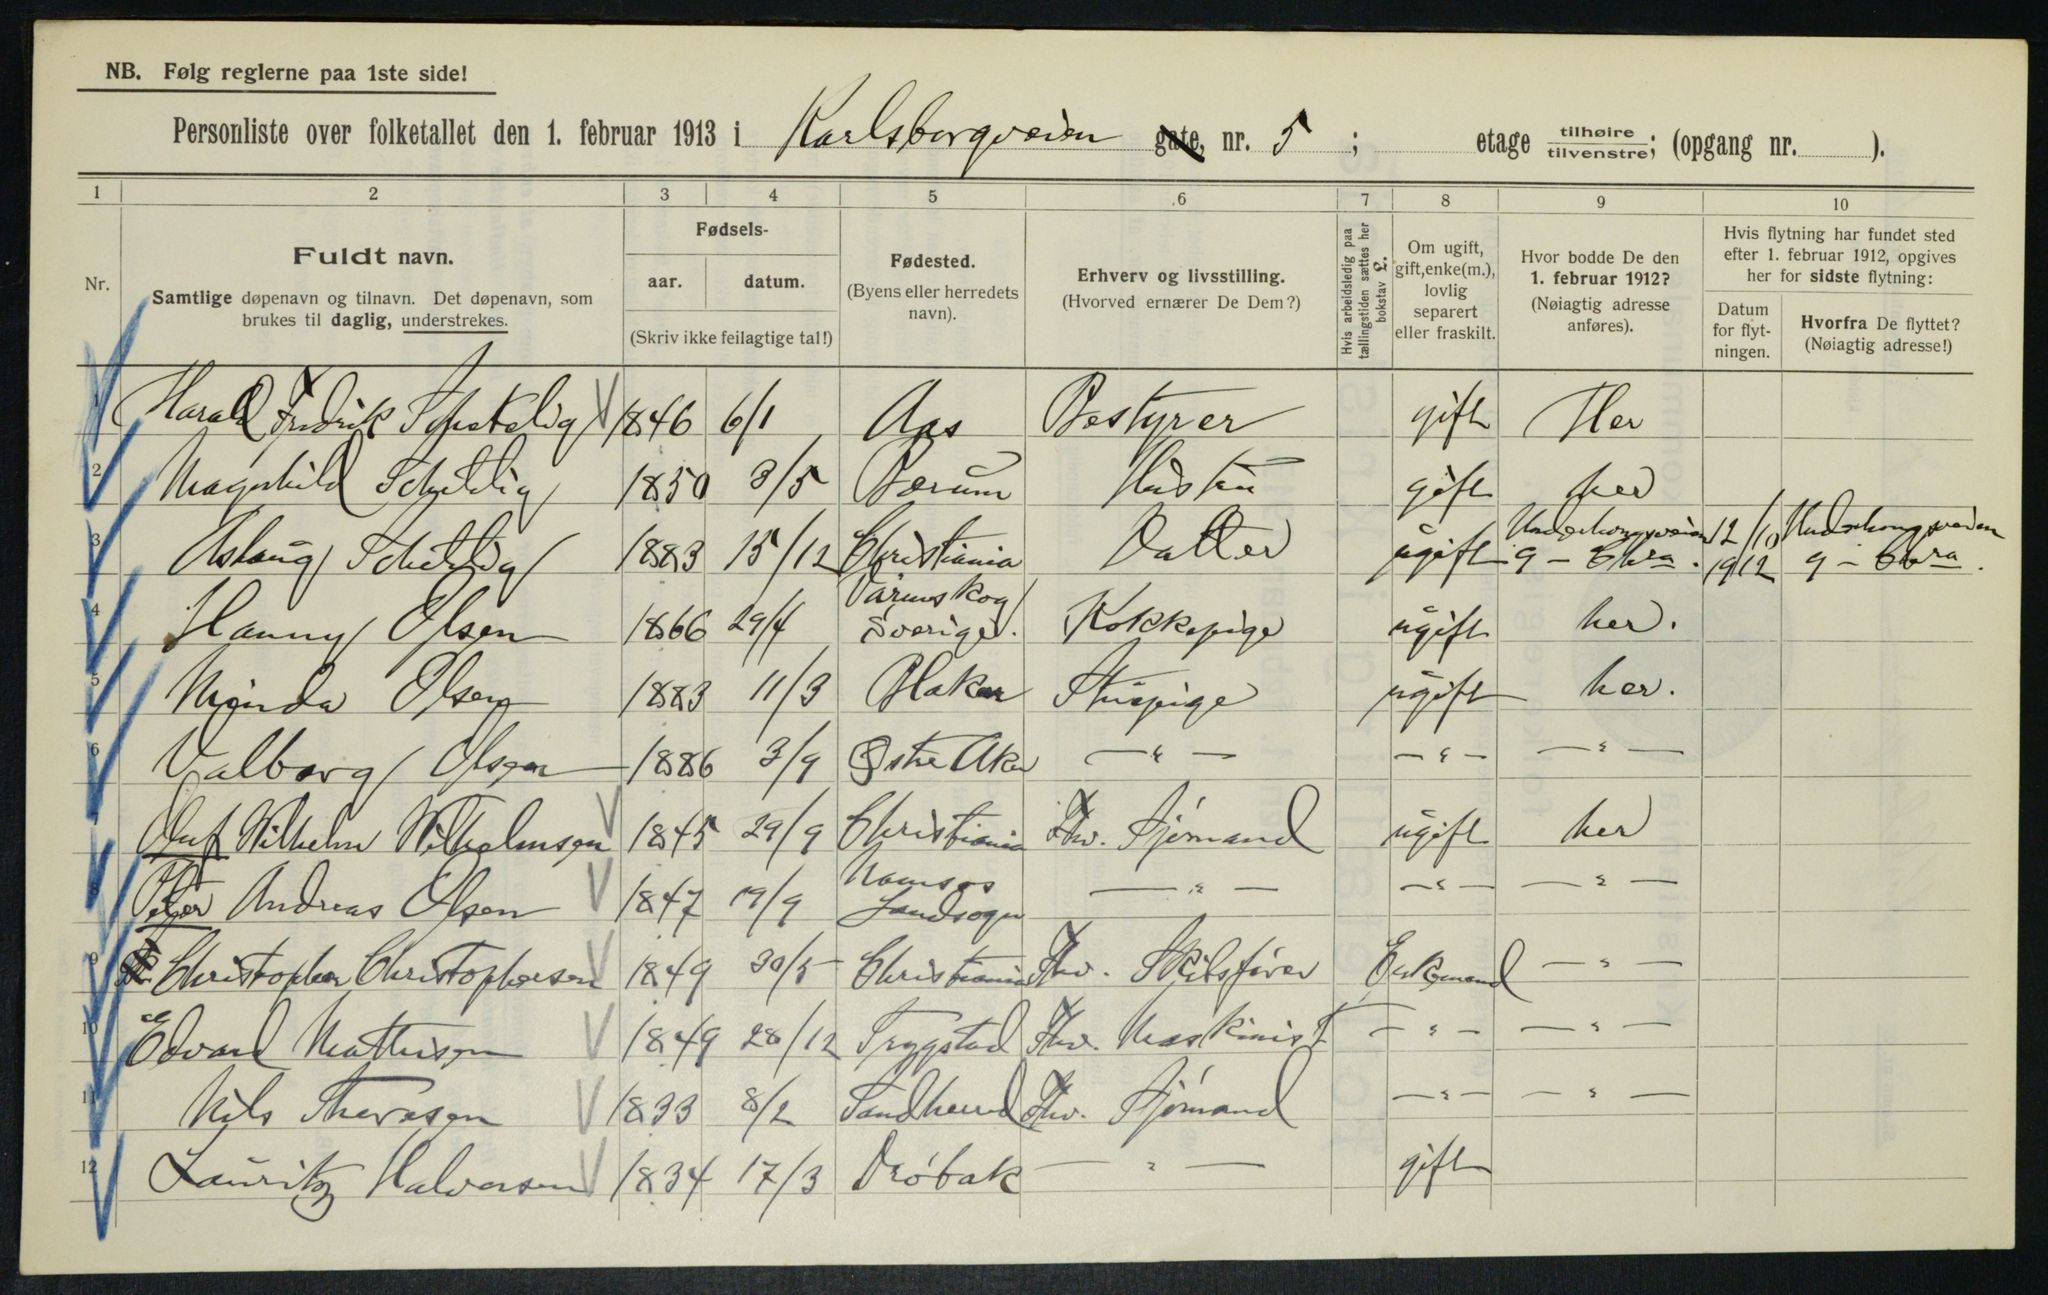 NB. Følg reglerne paa 1ste side!
Personliste over folketallet den 1. februar 1913 i Karlsborgveien gate, nr. 5 ; etage tilhøire/tilvenstre; (opgang nr. ).
1 2 3 4 5 6 7 8 9 10
Nr.
Fuldt navn.
Samtlige døpenavn og tilnavn. Det døpenavn, som
brukes til daglig, understrekes.
Fødsels-
aar. datum.
(Skriv ikke feilagtige tal!)
Fødested.
(Byens eller herredets
navn).
Erhverv og livsstilling.
(Hvorved ernærer De Dem?)
Hvis arbeidsledig paa
tællingstiden sættes her
bokstav £.
Om ugift,
gift, enke(m.),
lovlig
separert
eller fraskilt.
Hvor bodde De den
1. februar 1912?
(Nøiagtig adresse
anføres).
Hvis flytning har fundet sted
efter 1. februar 1912, opgives
her for sidste flytning:
Datum
for flyt-
ningen.
Hvorfra De flyttet?
(Nøiagtig adresse!)
1 Harald Fredrik Schetelig 1846 6/1 Aas Bestyrer gift Her
2 Magnhild Schetelig 1850 3/5 Bærum Hustru gift her
3 Aslaug Schetelig 1883 15/12 Christiania Datter ugift 9 - Chra. 12/10 1912 9 - Chra.
4 Hanny Olsen 1866 29/4 Värmskog Sverige. Kokkepige ugift her.
5 Minda Olsen 1883 11/3 Blaker Stuepige ugift her.
6 Valborg Olsen 1886 3/9 Østre Aker — " — — " — — " —
Oluf Wilhelm Wilhelmsen 1845 29/9 Christiania Fhv. Sjømand ugift her
8 Peter Andreas Olsen 1847 19/9 Namsos Landsogn — " — — " — — " —
9 Christopher Christophersen 1849 30/5 Christiania Fhv. Skibsfører Enkemand — " —
10 Edvard Mathisen 1849 28/12 Trygstad Fhv. Maskinist — " — — " —
11 Nils Thoresen 1833 8/2 Sandherred Fhv. Sjømand — " — — " —
12 Lauritz Halvorsen 1834 17/3 Drøbak — " — gift